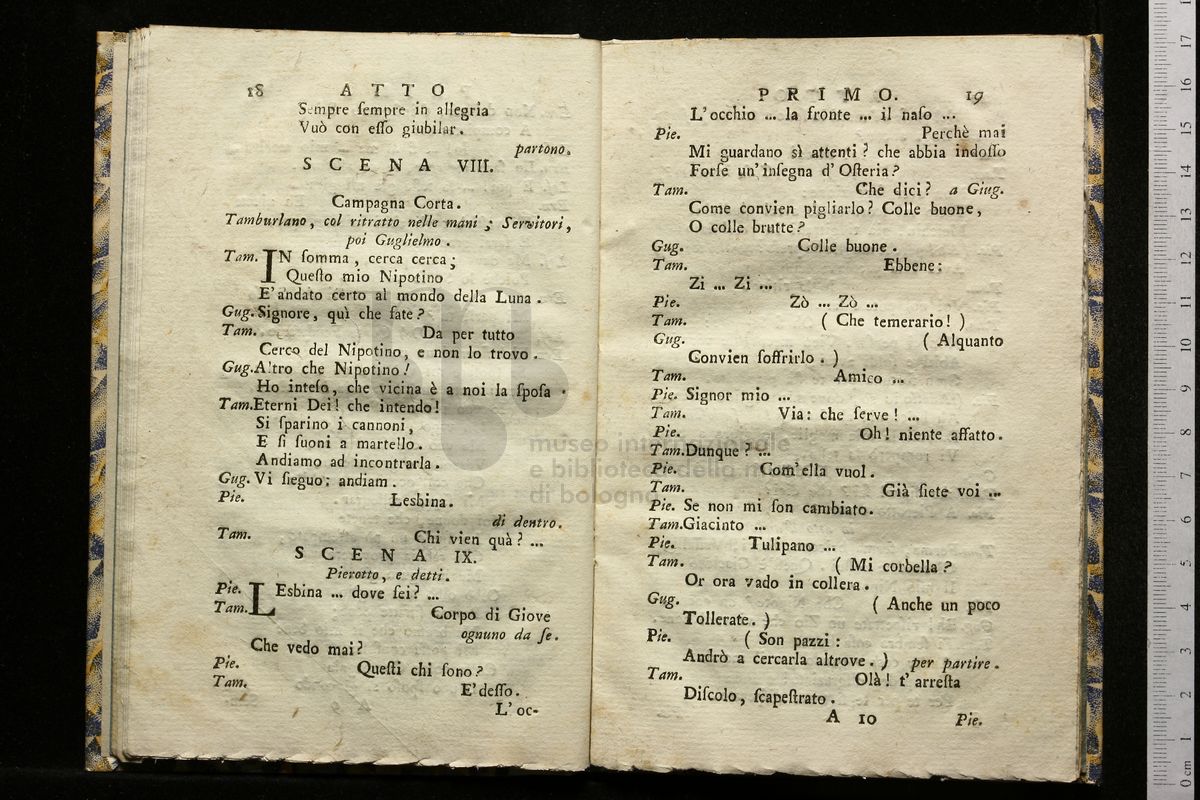 18 ATTO
Sempre ſempre in allegria
Vuò con eſſo giubilar.
partono.
SCENA VIII.
Campagna Corta.
Tamburlano, col ritratto nelle mani; Servitori,
poi Guglielmo.
Tam. IN ſomma, cerca cerca;
Queſto mio Nipotino
E'andato certo al mondo della Luna.
Gug. Signore, quì che fate?
Tam. Da per tutto
Cerco del Nipotino, e non lo trovo.
Gug. Altro che Nipotino!
Ho inteſo, che vicina è a noi la ſpoſa.
Tam. Eterni Dei! che intendo!
Si ſparino i cannoni,
E ſi ſuoni a martello.
Andiamo ad incontrarla.
Gug. Vi ſieguo; andiam.
Pie. Lesbina.
di dentro.
Tam. Chi vien quà? ...
SCENA IX.
Pierotto, e detti.
Pie. LEsbina ... dove ſei? ...
Tam. Corpo di Giove
ognuno da ſe.
Che vedo mai?
Pie. Queſti chi ſono?
Tam. E' deſſo.
L' oc-
PRIMO. 19
L'occhio ... la fronte ... il naſo ...
Pie. Perchè mai
Mi guardano sì attenti? che abbia indoſſo
Forſe un' inſegna d' Oſteria?
Tam. Che dici? a Giug.
Come convien pigliarlo? Colle buone,
O colle brutte?
Gug. Colle buone.
Tam. Ebbene:
Zi ... Zi ...
Pie. Zò ... Zò ...
Tam. ( Che temerario! )
Gug. ( Alquanto
Convien ſoffrirlo. )
Tam. Amico ...
Pie. Signor mio ...
Tam. Via: che ſerve! ...
Pie. Oh! niente affatto.
Tam. Dunque? ...
Pie. Com' ella vuol.
Tam. Già ſiete voi ...
Pie. Se non mi ſon cambiato.
Tam. Giacinto ...
Pie. Tulipano ...
Tam. ( Mi corbella?
Or ora vado in collera.
Gug. ( Anche un poco
Tollerate. )
Pie. ( Son pazzi:
Andrò a cercarla altrove. ) per partire.
Tam. Olà! t' arreſta
Diſcolo, ſcapeſtrato.
A 10 Pie.
museo internazionale
e biblioteca della m
di bologna
0 cm 1 2 3 4 5 6 7 8 9 10 11 12 13 14 15 16 17